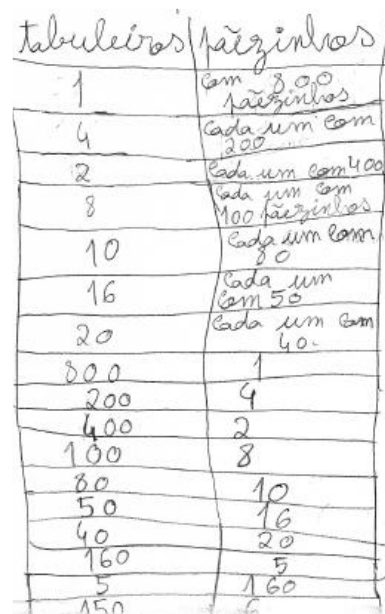 tabuleiros pãezinhos
1 com 800
pãezinhos
4 cada um com
200
2 cada um com 400
8 cada um com
100 pãezinhos
10 cada um com
80
16 cada um
com 50
20 cada um com
40.
800 1
200 4
400 2
100 8
80 10
50 16
40 20
160 5
5 160
150 6